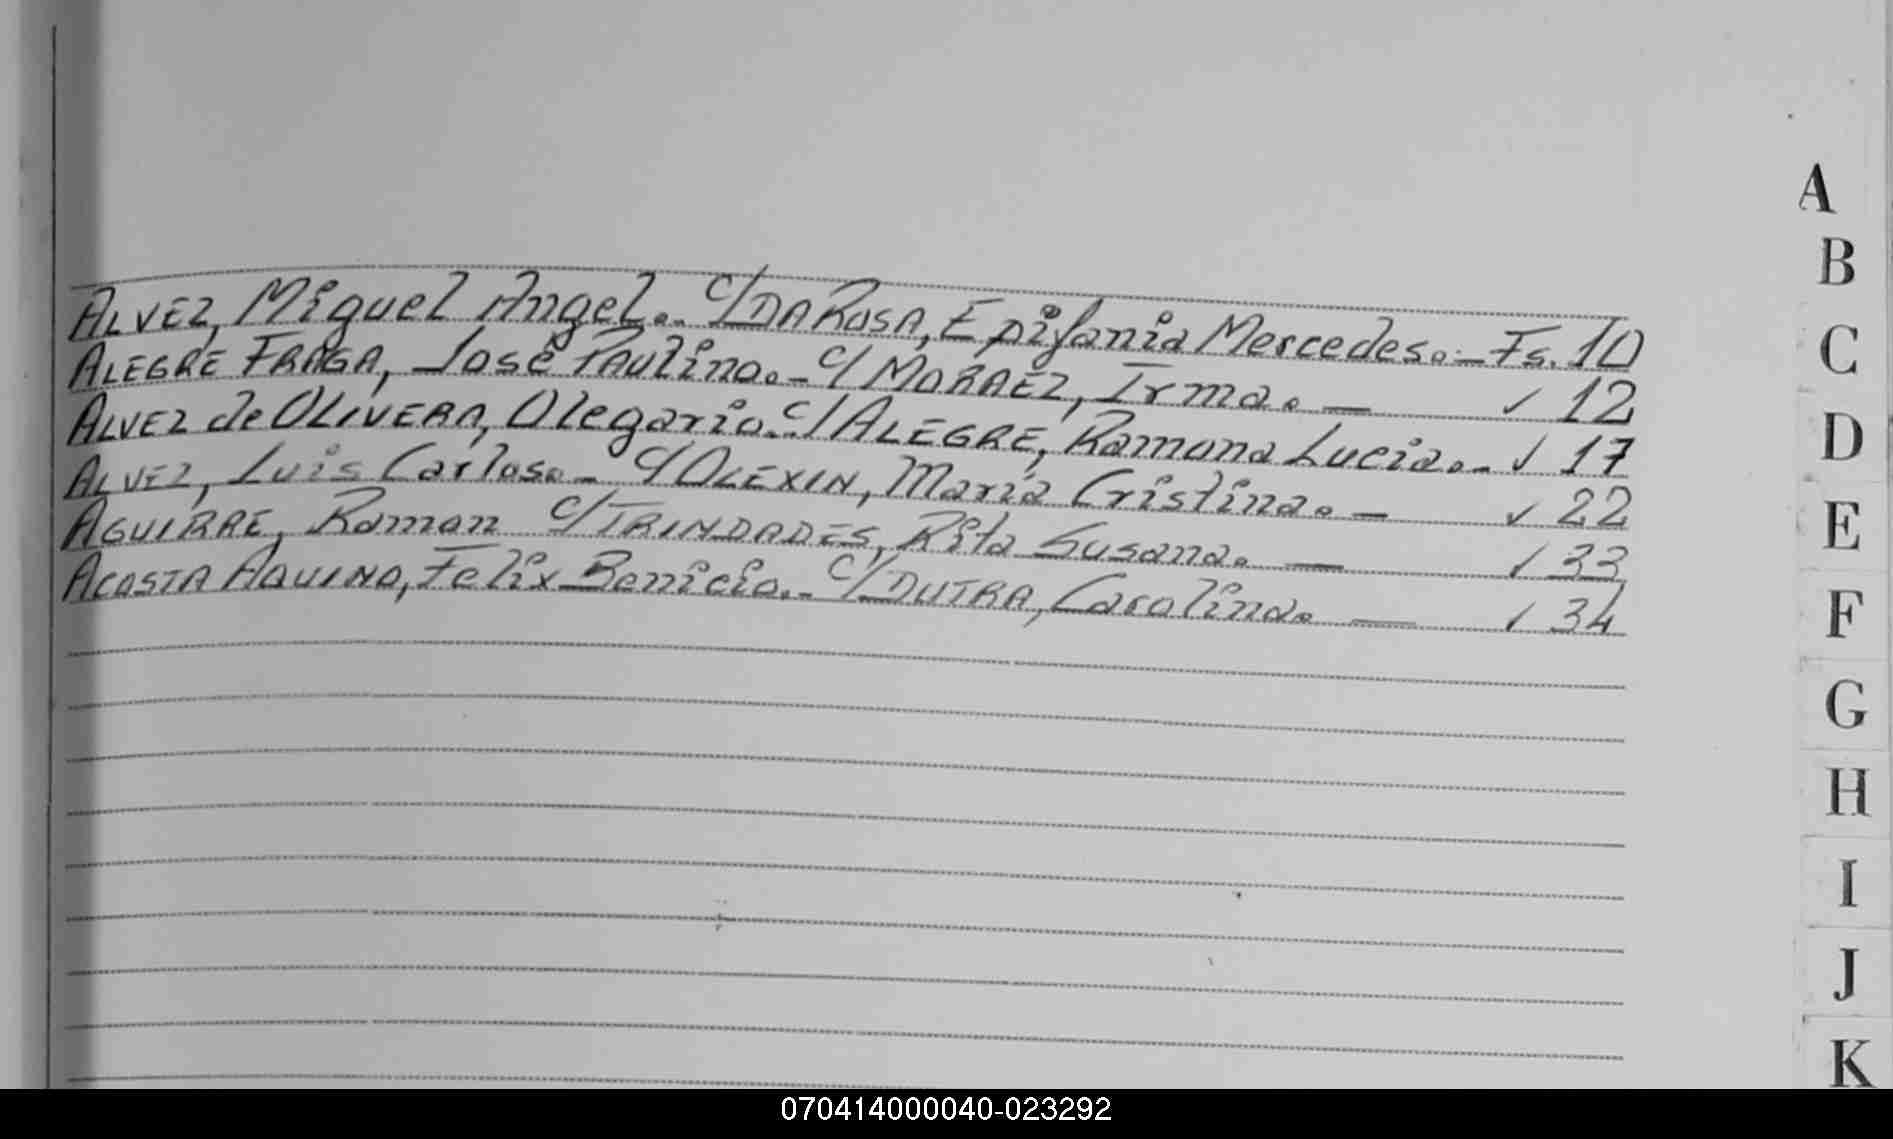 ALVEZ, Miguel Angel.- c/ DA ROSA, Epifania Mercedes.- Fs. 10
ALEGRE FRAGA, José PAULINO.- c/ MORAEZ, Irma.- ✓ 12
ALVEZ de OLIVERA, Olegario.- c/ ALEGRE, Ramona Lucia.- ✓ 17
ALVEZ, Luis Carlos.- c/ OLEXIN, María Cristina.- ✓ 22
AGUIRRE, Ramon c/ TRINDADES, Rita Susana.- ✓ 33
ACOSTA AQUINO, Felix Benicio.- c/ DUTRA, Carolina.- ✓ 34
A
B
C
D
E
F
G
H
I
J
K
070414000040-023292